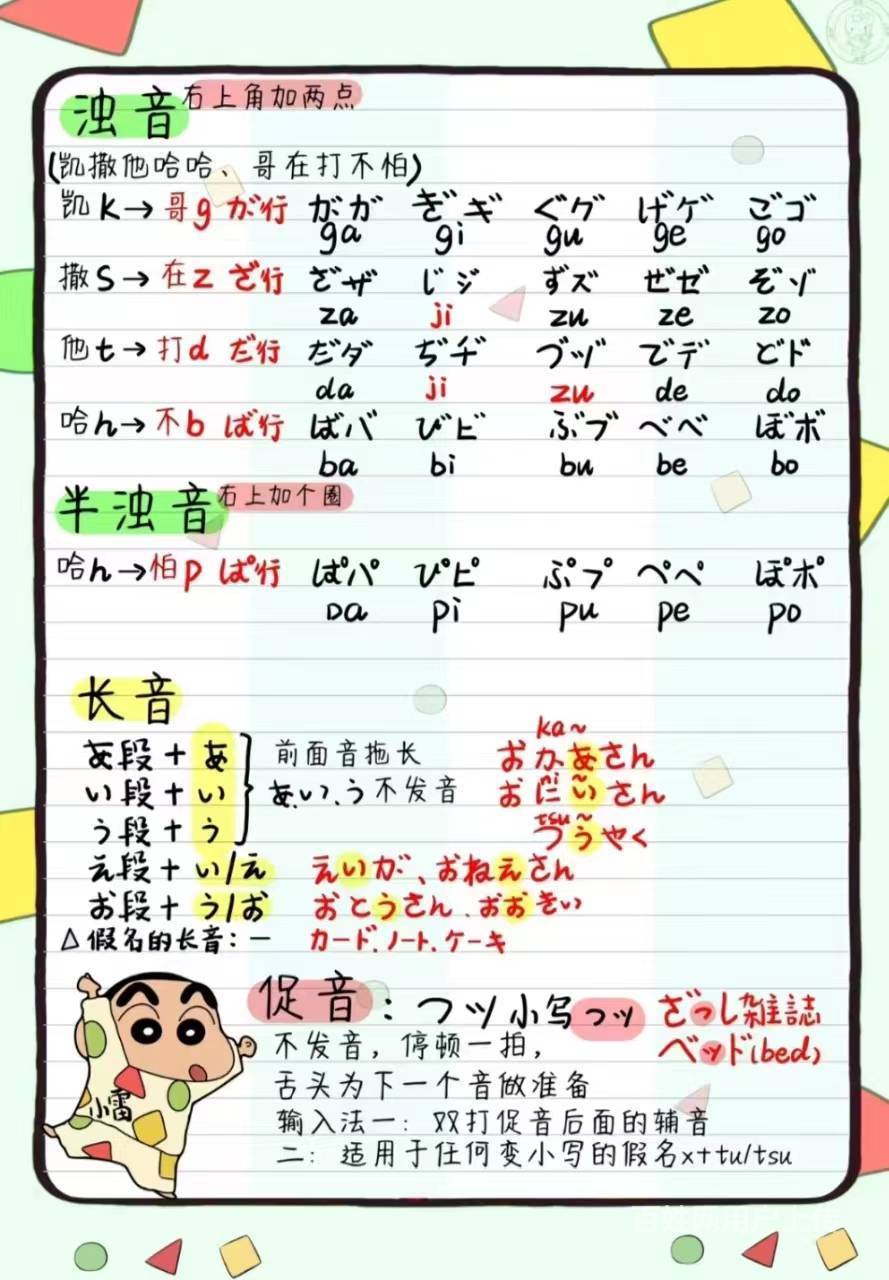 浊音 右上角加两点
(凯撒他哈哈、哥在打不怕)
凯k→哥g が行 がガ ぎギ ぐグ げゲ ごゴ
ga gi gu ge go
撒s→在z ざ行 ざザ じジ ずズ ぜゼ ぞゾ
za ji zu ze zo
他t→打d だ行 だダ ぢヂ づヅ でデ どド
da ji zu de do
哈h→不b ば行 ばバ びビ ぶブ べベ ぼボ
ba bi bu be bo
半浊音 右上加个圈
哈h→怕p ぱ行 ぱパ ぴピ ぷプ ぺペ ぽポ
pa pi pu pe po
长音
ka~
あ段+あ 前面音拖长 おかあさん
ni~
い段+い あ、い、う不发音 おにいさん
tsu~
う段+う つうやく
え段+い/え えいが、おねえさん
お段+う/お おとうさん、おおきい
△假名的长音:ー カード、ノート、ケーキ
促音:つツ小写っッ ざっし雑誌
不发音,停顿一拍, ベッド(bed)
舌头为下一个音做准备
输入法一:双打促音后面的辅音
二:适用于任何变小写的假名x+tu/tsu
小雷
百姓网用户上传